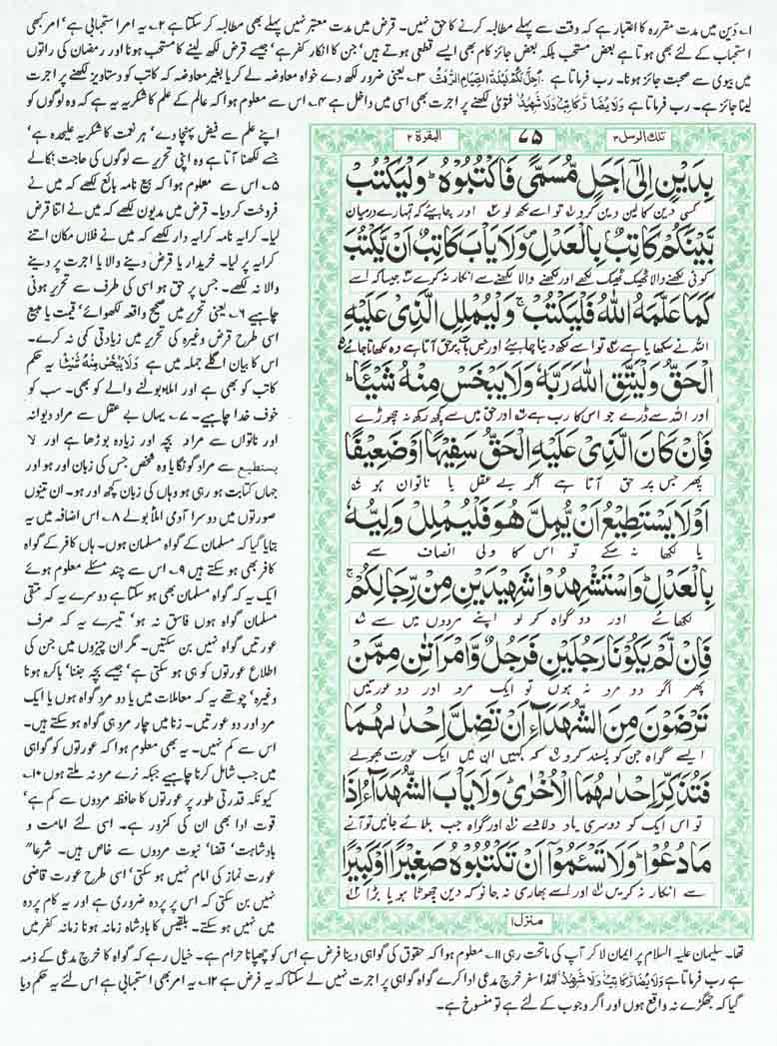 ۱؎ دَین میں مدت مقررہ کا اعتبار ہے کہ وقت سے پہلے مطالبہ کرنے کا حق نہیں۔ قرض میں مدت معتبر نہیں پہلے بھی مطالبہ کر سکتا ہے ۲؎ یہ امر استحبابی ہے' امر کبھی
استحباب کے لئے بھی ہوتا ہے بعض مستحب بلکہ بعض جائز کام بھی ایسے قطعی ہوتے ہیں' جن کا انکار کفر ہے' جیسے قرض لکھ لینے کا مستحب ہونا اور رمضان کی راتوں
میں بیوی سے صحبت جائز ہونا۔ رب فرماتا ہے اُحِلَّ لَکُمْ لَیْلَۃَ الصِّیَامِ الرَّفَثُ ۳؎ یعنی ضرور لکھ دے خواہ معاوضہ لے کر یا بغیر معاوضہ کہ کاتب کو دستاویز لکھنے پر اجرت
لینا جائز ہے۔ رب فرماتا ہے وَلَا یُضَآرَّ کَاتِبٌ وَّلَا شَہِیْدٌ فتویٰ لکھنے پر اجرت بھی اسی میں داخل ہے ۴؎ اس سے معلوم ہوا کہ عالم کے علم کا شکریہ یہ ہے کہ وہ لوگوں کو
تلك الرسل ۳
۷۵
البقرة ۲
بِدَيْنٍ اِلٰۤى اَجَلٍ مُّسَمًّى فَاكْتُبُوْهُ ؕ وَلْيَكْتُبْ
کسی دین کا لین دین کرو تو اسے لکھ لو اور چاہیئے کہ تمہارے درمیان
بَّيْنَكُمْ كَاتِبٌۢ بِالْعَدْلِ ۪ وَلَا يَاْبَ كَاتِبٌ اَنْ يَّكْتُبَ
کوئی لکھنے والا ٹھیک ٹھیک لکھے اور لکھنے والا لکھنے سے انکار نہ کرے جیسا کہ اسے
كَمَا عَلَّمَهُ اللّٰهُ فَلْيَكْتُبْ ۚ وَلْيُمْلِلِ الَّذِيْ عَلَيْهِ
اللہ نے سکھایا ہے تو اسے لکھ دینا چاہیئے اور جس بات پر حق آتا ہے وہ لکھاتا جائے
الْحَقُّ وَلْيَتَّقِ اللّٰهَ رَبَّهٗ وَلَا يَبْخَسْ مِنْهُ شَيْـًٔا ؕ
اور اللہ سے ڈرے جو اس کا رب ہے اور حق میں سے کچھ رکھ نہ چھوڑے
فَاِنْ كَانَ الَّذِيْ عَلَيْهِ الْحَقُّ سَفِيْهًا اَوْ ضَعِيْفًا
پھر جس پر حق آتا ہے اگر بے عقل یا ناتواں ہو
اَوْ لَا يَسْتَطِيْعُ اَنْ يُّمِلَّ هُوَ فَلْيُمْلِلْ وَلِيُّهٗ
یا لکھا نہ سکے تو اس کا ولی انصاف سے
بِالْعَدْلِ ؕ وَاسْتَشْهِدُوْا شَهِيْدَيْنِ مِنْ رِّجَالِكُمْ ۚ
لکھائے اور دو گواہ کر لو اپنے مردوں میں سے
فَاِنْ لَّمْ يَكُوْنَا رَجُلَيْنِ فَرَجُلٌ وَّامْرَاَتٰنِ مِمَّنْ
پھر اگر دو مرد نہ ہوں تو ایک مرد اور دو عورتیں
تَرْضَوْنَ مِنَ الشُّهَدَآءِ اَنْ تَضِلَّ اِحْدٰىهُمَا
ایسے گواہ جن کو پسند کرو کہ کہیں ان میں ایک عورت بھولے
فَتُذَكِّرَ اِحْدٰىهُمَا الْاُخْرٰى ؕ وَلَا يَاْبَ الشُّهَدَآءُ اِذَا
تو اس ایک کو دوسری یاد دلادے اور گواہ جب بلائے جائیں تو آنے
مَا دُعُوْا ؕ وَلَا تَسْـَٔمُوْۤا اَنْ تَكْتُبُوْهُ صَغِيْرًا اَوْ كَبِيْرًا
سے انکار نہ کریں اور اسے بھاری نہ جانو کہ دین چھوٹا ہو یا بڑا
منزل ۱
اپنے علم سے فیض پہنچا دے' ہر نعمت کا شکریہ علیحدہ ہے'
جسے لکھنا آتا ہے وہ اپنی تحریر سے لوگوں کی حاجت نکالے
۵؎ اس سے معلوم ہوا کہ بیع نامہ بائع لکھے کہ میں نے
فروخت کر دیا۔ قرض میں مدیون لکھے کہ میں نے اتنا قرض
لیا۔ کرایہ نامہ کرایہ دار لکھے کہ میں نے فلاں مکان اتنے
کرایہ پر لیا۔ خریدار یا قرض دینے والا یا اجرت پر دینے
والا نہ لکھے۔ جس پر حق ہو اسی کی طرف سے تحریر ہونی
چاہیے ۶؎ یعنی تحریر میں صحیح واقعہ لکھوائے' قیمت یا مبیع
اسی طرح قرض وغیرہ کی تحریر میں زیادتی کمی نہ کرے۔
اس کا بیان اگلے جملہ میں ہے وَلَا یَبْخَسْ مِنْہُ شَیْئًا یہ حکم
کاتب کو بھی ہے اور املاء بولنے والے کو بھی۔ سب کو
خوف خدا چاہیے۔ ۷؎ یہاں بے عقل سے مراد دیوانہ
اور ناتواں سے مراد بچہ اور زیادہ بوڑھا ہے اور لا
یستطیع سے مراد گونگا یا وہ شخص جس کی زبان اور ہو اور
جہاں کتابت ہو رہی ہو وہاں کی زبان کچھ اور ہو۔ ان تینوں
صورتوں میں دوسرا آدمی املا بولے ۸؎ اس اضافہ میں یہ
بتایا گیا کہ مسلمان کے گواہ مسلمان ہوں۔ ہاں کافر کے گواہ
کافر بھی ہو سکتے ہیں ۹؎ اس سے چند مسئلے معلوم ہوئے
ایک یہ کہ گواہ مسلمان بھی ہو سکتا ہے دوسرے یہ کہ متقی
مسلمان گواہ ہوں فاسق نہ ہو' تیسرے یہ کہ صرف
عورتیں گواہ نہیں بن سکتیں۔ مگر ان چیزوں میں جن کی
اطلاع عورتوں کو ہی ہو سکتی ہے' جیسے بچہ جننا' باکرہ ہونا
وغیرہ' چوتھے یہ کہ معاملات میں یا دو مرد گواہ ہوں یا ایک
مرد اور دو عورتیں۔ زنا میں چار مرد ہی گواہ ہو سکتے ہیں۔
اس سے کم نہیں۔ یہ بھی معلوم ہوا کہ عورتوں کو گواہی
میں جب شامل کرنا چاہیے جبکہ نرے مرد نہ ملتے ہوں ۱۰؎
کیونکہ قدرتی طور پر عورتوں کا حافظہ مردوں سے کم ہے'
قوت ادا بھی ان کی کمزور ہے۔ اسی لئے امامت و
بادشاہت' قضا' نبوت مردوں سے خاص ہیں۔ شرعاً"
عورت نماز کی امام نہیں ہو سکتی' اسی طرح عورت قاضی
نہیں بن سکتی کہ اس پر پردہ ضروری ہے اور یہ کام پردہ
میں نہیں ہو سکتے۔ بلقیس کا بادشاہ زمانہ ہونا زمانہ کفر میں
تھا۔ سلیمان علیہ السلام پر ایمان لا کر آپ کی ماتحت رہی ۱۱؎ معلوم ہوا کہ حقوق کی گواہی دینا فرض ہے اس کو چھپانا حرام ہے۔ خیال رہے کہ گواہ کا خرچ مدعی کے ذمہ
ہے رب فرماتا ہے وَلَا یُضَآرَّ کَاتِبٌ وَّلَا شَہِیْدٌ لہٰذا سفر خرچ مدعی ادا کرے گواہ گواہی پر اجرت نہیں لے سکتا کہ یہ فرض ہے ۱۲؎ یہ امر بھی استحبابی ہے اس لئے یہ حکم دیا
گیا کہ جھگڑے نہ واقع ہوں اور اگر وجوب کے لئے ہے تو منسوخ ہے۔